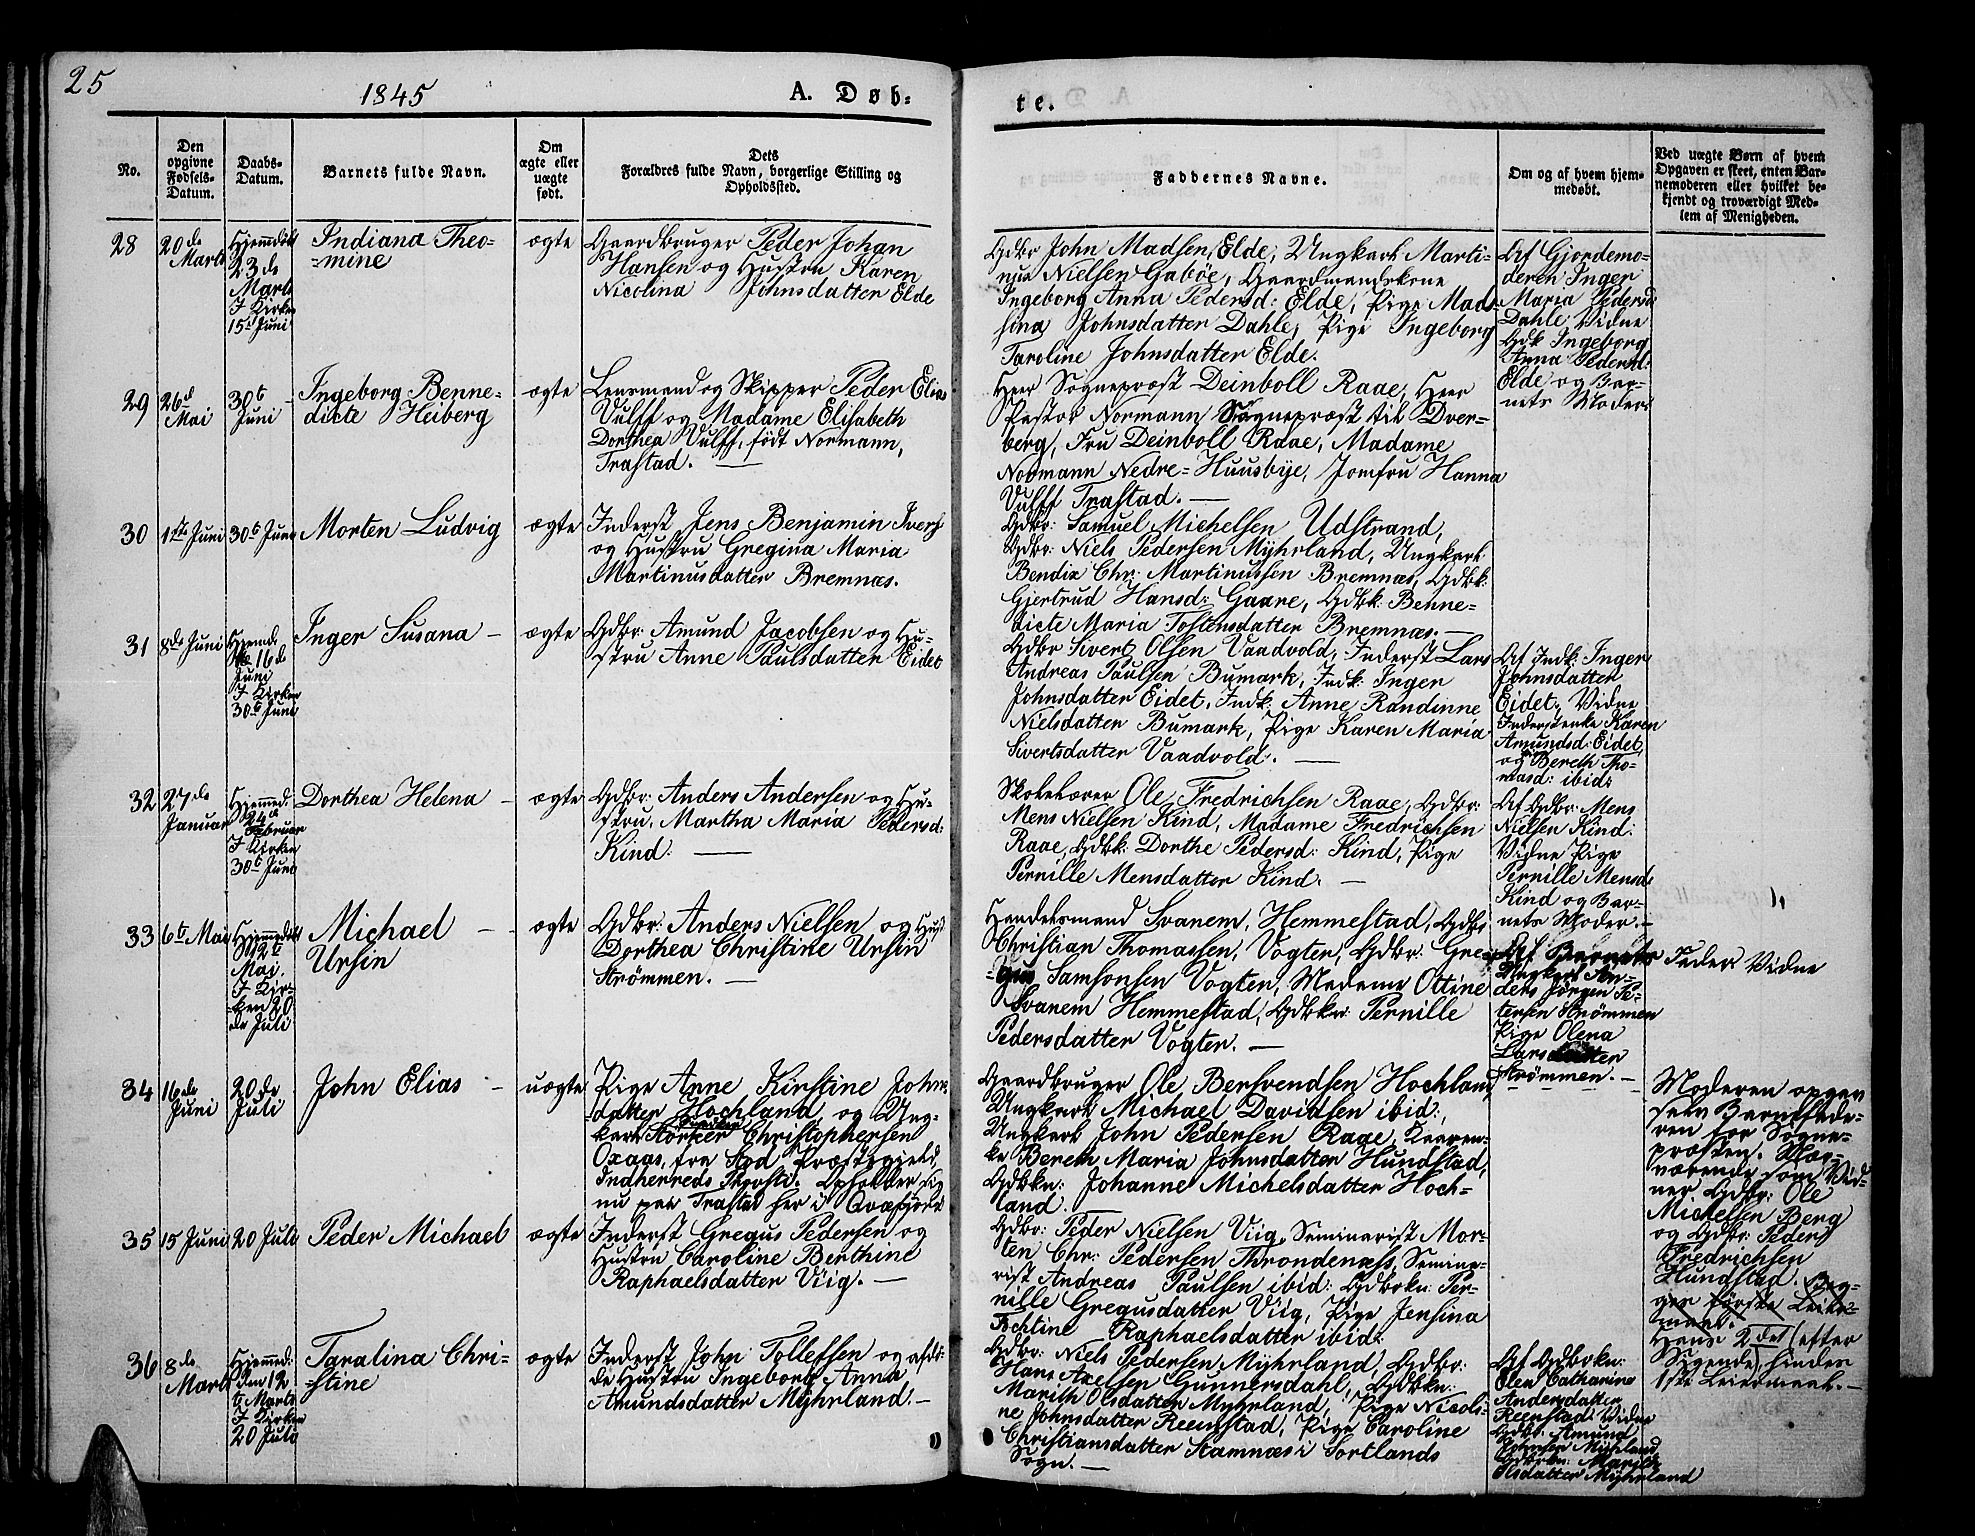 25
1845
A. Døb-
te.
No.
Den
opgivne
Fødsels-
Datum.
Daabs-
Datum.
Barnets fulde Navn.
Om
ægte eller
uægte
født.
Dets
Forældres fulde Navn, borgerlige Stilling og
Opholdssted.
Faddernes Navne.
Om og af hvem hjem-
medøbt.
Ved uægte Børn af hvem
Opgaven er skeet, enten Bar-
nemoderen eller hvilket be-
kjendt og troværdigt Med-
lem af Menigheden.
28
20de
Marts
Hjemdøbt
23de
Marts
I Kirken
15 Juni
Indiana Theo-
=mine
ægte
Gaardbruger Peder Johan
Hansen og Hustru Karen
Nicolina Johnsdatter Elde
Gdbr John Madsen, Elde, Ungkarl Marti-
nus Nielsen Gabøe, Gaardmandskone
Ingeborg Anna Pedersd: Elde, Pige Mad-
sina Johnsdatter Dahle, Pige Ingeborg
Taroline Johnsdatter Elde.
Af Gjordemo-
deren Inger
Maria Pedersd:
Dahle, Vidne
Gdk Ingeborg
Anna Pedersd:
Elde og Bar-
nets Moder.
29
26d
Mai
30t
Juni
Ingeborg Benne-
dicte Heiberg
ægte
Lensmand og Skipper Peder Elias
Vulff og Madame Elisabeth
Dorthea Vulff, født Normann,
Trastad. —
Herr Sognepræst Deinboll Raae, Herr
Pastor Normann Sognepræst til Dver-
berg, Fru Deinboll Raae, Madame
Normann Nedre=Huusbye, Jomfru Hanna
Vulff Trastad. —
30
1ste Juni
30t Juni
Morten Ludvig
ægte
Inderst Jens Benjamin Ivers
og Hustru Gregina Maria
Martinusdatter Bremnæs.
Gdbr: Samuel Michelsen Udstrand,
Gdbr: Niels Pedersen Myhrland, Ungkarl
Bendix Chr: Martinussen Bremnæs, Gdbk:
Gjertrud Hansd: Gaare, Gdbk: Benne-
dicte Maria Tostensdatter Bremnæs. —
31
8de Juni
Hjemdø
16de
Juni
I Kirken
30t Juni
Inger Susana —
ægte
Gdbr: Amund Jacobsen og Hu-
stru Anne Paulsdatter Eidet
Gdbr Sivert Olsen Vaadvold, Inderst Lars
Andreas Paulsen Bumark, Indk: Inger
Johnsdatter Eidet, Indk: Anne Randinne
Nielsdatter Bumark, Pige Karen Maria
Sivertsdatter Vaadvold. —
Af Indk: Inger
Johnsdatter
Eidet, Vidne
Inderstenke Karen
Amundsd: Eidet
og Bereth Tho-
masd: ibid:
32
27de
Januar
Hjemmed:
24d
Februar
I Kirken
30t Juni
Dorthea Helena —
ægte
Gdbr: Anders Andersen og Hu-
stru, Martha Maria Pedersd:
Kind. —
Skolelærer Ole Fredrichsen Raae, Gdbr:
Mens Nielsen Kind, Madame Fredrichsen
Raae, Gdbk: Dorthe Pedersd: Kind, Pige
Pernille Mensdatter Kind. —
Af Gdbr: Mens
Nielsen Kind:
Vidne Pige
Pernille Mensd:
Kind og Bar-
nets Moder. —
33
6t Mai
Hjemmedøbt
12t
Mai.
I Kir-
ken 20
de Juli
Michael —
Ursin
ægte
Gdbr: Anders Nielsen og Hust
Dorthea Christine Ursin
Strømmen. —
Handelsmand Svanem, Hemmestad, Gdbr
Christian Thomassen, Vogten, Gdbr: Gre-
=gus Samsonsen Vogten, Madame Ottine
Svanem Hemmestad, Gdbkn: Pernille
Pedersdatter Vogten. —
Af Barnets Fader Vidne
Ungkarl An-
ders Jørgen Pe-
tersen Strømmen
Pige Olena
Larsdatter
Strømmen. —
34
16de
Juni
20de
Juli
John Elias —
uægte
Pige Anne Kirstine Johns-
=datter Hochland og Ung-
karl Størker Christophersen
Oxaas, fra Stod Præstegjeld,
Indherreds Provsti. Opholder sig
nu paa Trastad her i Qvæfjord
Gaardbruger Ole Bersvendsen Hochland,
Ungkarl Michael Davidsen ibid:,
Ungkarl John Pedersen Raae, Kaaren-
ke Bereth Maria Johnsdatter Hundstad,
Gdbkn: Johanne Michelsdatter Hoch-
land.
Moderen opgav
selv Barnefade-
ren for Sogne-
præsten. Nær-
værende som Vid-
ner Gdbr: Ole
Michelsen Berg
og Gdbr: Peder
Fredrichsen
Hundstad. Beg-
ges første Leier-
maal.
Hans 2det (efter
Sigende) hindes
1ste Leiermaal. —
35
15 Juni
20 Juli
Peder Michael
ægte
Inderst Gregus Pedersen og
Hustru Caroline Berthine
Raphaelsdatter Viig. —
Gdbr: Peder Nielsen Viig, Seminarist Mor-
ten Chr: Pedersen Throndenæs, Semina-
rist Andreas Paulsen ibid: Gdbokn: Per-
nille Gregusdatter Viig, Pige Jensina
Raphaelsdatter ibid:
36
8de
Marts
Hjemmed:
den 12
t Marts
I Kirken
20 Juli
Taralina Chri-
=stine
ægte
Inderst John Tollefsen og afdø-
de Hustru Ingeborg Anna
Amundsdatter Myhrland. —
Gdbr: Niels Pedersen Myhrland, Gdbr:
Hans Axelsen Gunnersdahl, Gdbkn:
Marith Olsdatter Myhrland, Pige Nicoli-
ne Johnsdatter Reenstad, Pige Caroline
Christiansdatter Stamnæs i Sortlands
Sogn. —
Af Gdbokn:
Olea Catharine
Andersdatter
Reenstad: Vidne
Gdbr: Amund
Johnsen Myhrland
Gdbrkn: Marith
Olsdatter Myhrland